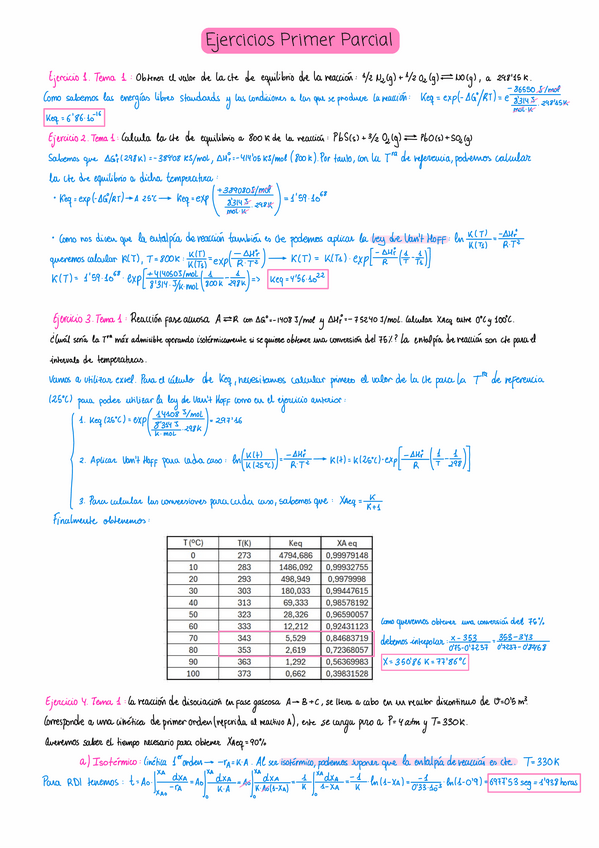 Ejercicios Primer Parcial
Ejercicio 1. Tema 1: Obtener el valor de la cte de equilibrio de la reacción: 1/2 N2(g) + 1/2 O2(g) ⇌ NO(g), a 298'15 K.
Como sabemos las energías libres standards y las condiciones a las que se produce la reacción: Keq = exp(-ΔG°/RT) = e^(-86550 J/mol / 8'314 J/mol·K · 298'15K)
Keq = 6'86·10^-16
Ejercicio 2. Tema 1: Calcula la cte de equilibrio a 800 K de la reacción: PbS(s) + 3/2 O2(g) ⇌ PbO(s) + SO2(g)
Sabemos que ΔG°r(298K) = -389'08 KJ/mol, ΔH°r = -414'05 KJ/mol (800K). Por tanto, con la Tra de referencia, podremos calcular
la cte de equilibrio a dicha temperatura:
· Keq = exp(-ΔG°/RT) → A 25°C → Keq = exp(+389080 J/mol / 8'314 J/mol·K · 298K) = 1'59·10^68
· Como nos dicen que la entalpía de reacción también es cte podemos aplicar la ley de Van't Hoff: ln K(T)/K(T0) = -ΔH°r/R·T²
queremos calcular K(T), T = 800K: K(T)/K(T0) = exp(-ΔH°r/R·T²) → K(T) = K(T0)·exp[-ΔH°r/R (1/T - 1/T0)]
K(T) = 1'59·10^68 · exp[+414050 J/mol / 8'314 J/K·mol (1/800K - 1/298K)] => Keq = 4'56·10^22
Ejercicio 3. Tema 1: Reacción fase acuosa A ⇌ R con ΔG° = -14108 J/mol y ΔH°r = -75240 J/mol. Calcular XAeq entre 0°C y 100°C.
¿Cuál sería la Tra máx admisible operando isotérmicamente si se quiere obtener una conversión del 75%? La entalpía de reacción son cte para el
intervalo de temperaturas.
Vamos a utilizar excel. Para el cálculo de Keq, necesitamos calcular primero el valor de la cte para la Tra de referencia
(25°C) para poder utilizar la ley de Van't Hoff como en el ejercicio anterior:
1. Keq(25°C) = exp(14108 J/mol / 8'314 J/K·mol · 298K) = 297'16
2. Aplicar Van't Hoff para cada caso: ln(K(T)/K(25°C)) = -ΔH°r/R·T² → K(T) = K(25°C)·exp[-ΔH°r/R (1/T - 1/298)]
3. Para calcular las conversiones para cada caso, sabemos que: XAeq = K/K+1
Finalmente obtenemos:
T (ºC) T(K) Keq XA eq
0 273 4794,686 0,99979148
10 283 1486,092 0,99932755
20 293 498,949 0,9979998
30 303 180,033 0,99447615
40 313 69,333 0,98578192
50 323 28,326 0,96590057
60 333 12,212 0,92431123
70 343 5,529 0,84683719
80 353 2,619 0,72368057
90 363 1,292 0,56369983
100 373 0,662 0,39831528
Como queremos obtener una conversión del 75%
debemos interpolar: x-353/0'75-0'7237 = 353-343/0'7237-0'8468
X = 350'86 K = 77'86°C
Ejercicio 4. Tema 1: La reacción de disociación en fase gaseosa A → B + C, se lleva a cabo en un reactor discontinuo de V=0'5 m³.
Corresponde a una cinética de primer orden (referida al reactivo A), este se carga puro a P = 4 atm y T = 330K.
Queremos saber el tiempo necesario para obtener XAeq = 90%
a) Isotérmico: Cinética 1er orden → -rA = K·A. Al ser isotérmico, podemos suponer que la entalpía de reacción es cte. T = 330K
Para RDI tenemos: t = A0·∫XA0^XA dXA/-rA = A0∫0^XA dXA/K·A = A0∫0^XA dXA/K·A0(1-XA) = 1/K ∫0^XA dXA/1-XA = -1/K · ln(1-XA) = -1/0'33·10^-3 · ln(1-0'9) = 6977'53 seg = 1'938 horas